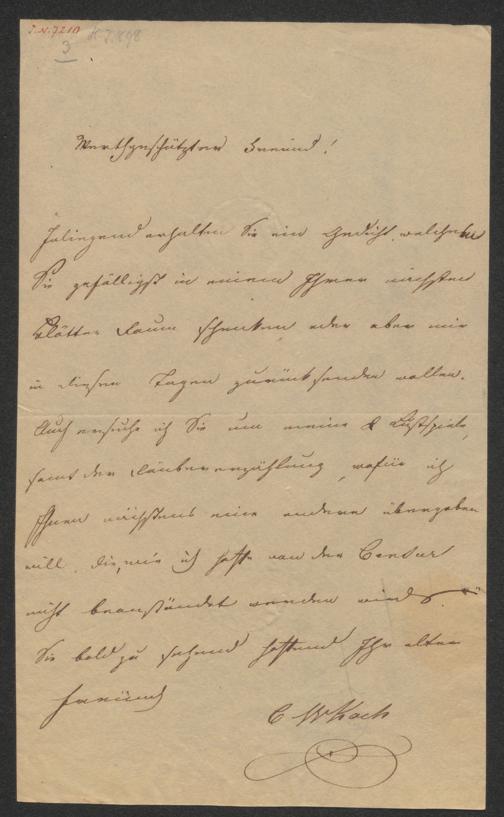 J.N. 7210
3
Werthgeschätzter Freund!
Inliegend erhalten Sie ein Gedicht welchem
Sie gefälligst in einem Ihrer nächsten
Blätter Raum schenken oder aber mir
in diesen Tagen zurücksenden wollen.
Auch ersuche ich Sie um meine 2 Lustspiele,
samt der Räubererzählung, wofür ich
Ihnen nächstens eine andere übergeben
will, die, wie ich hoffe von der Censur
nicht beanständet werden wird.
Sie bald zu sehend hoffend Ihr alter
Freund
C W Koch